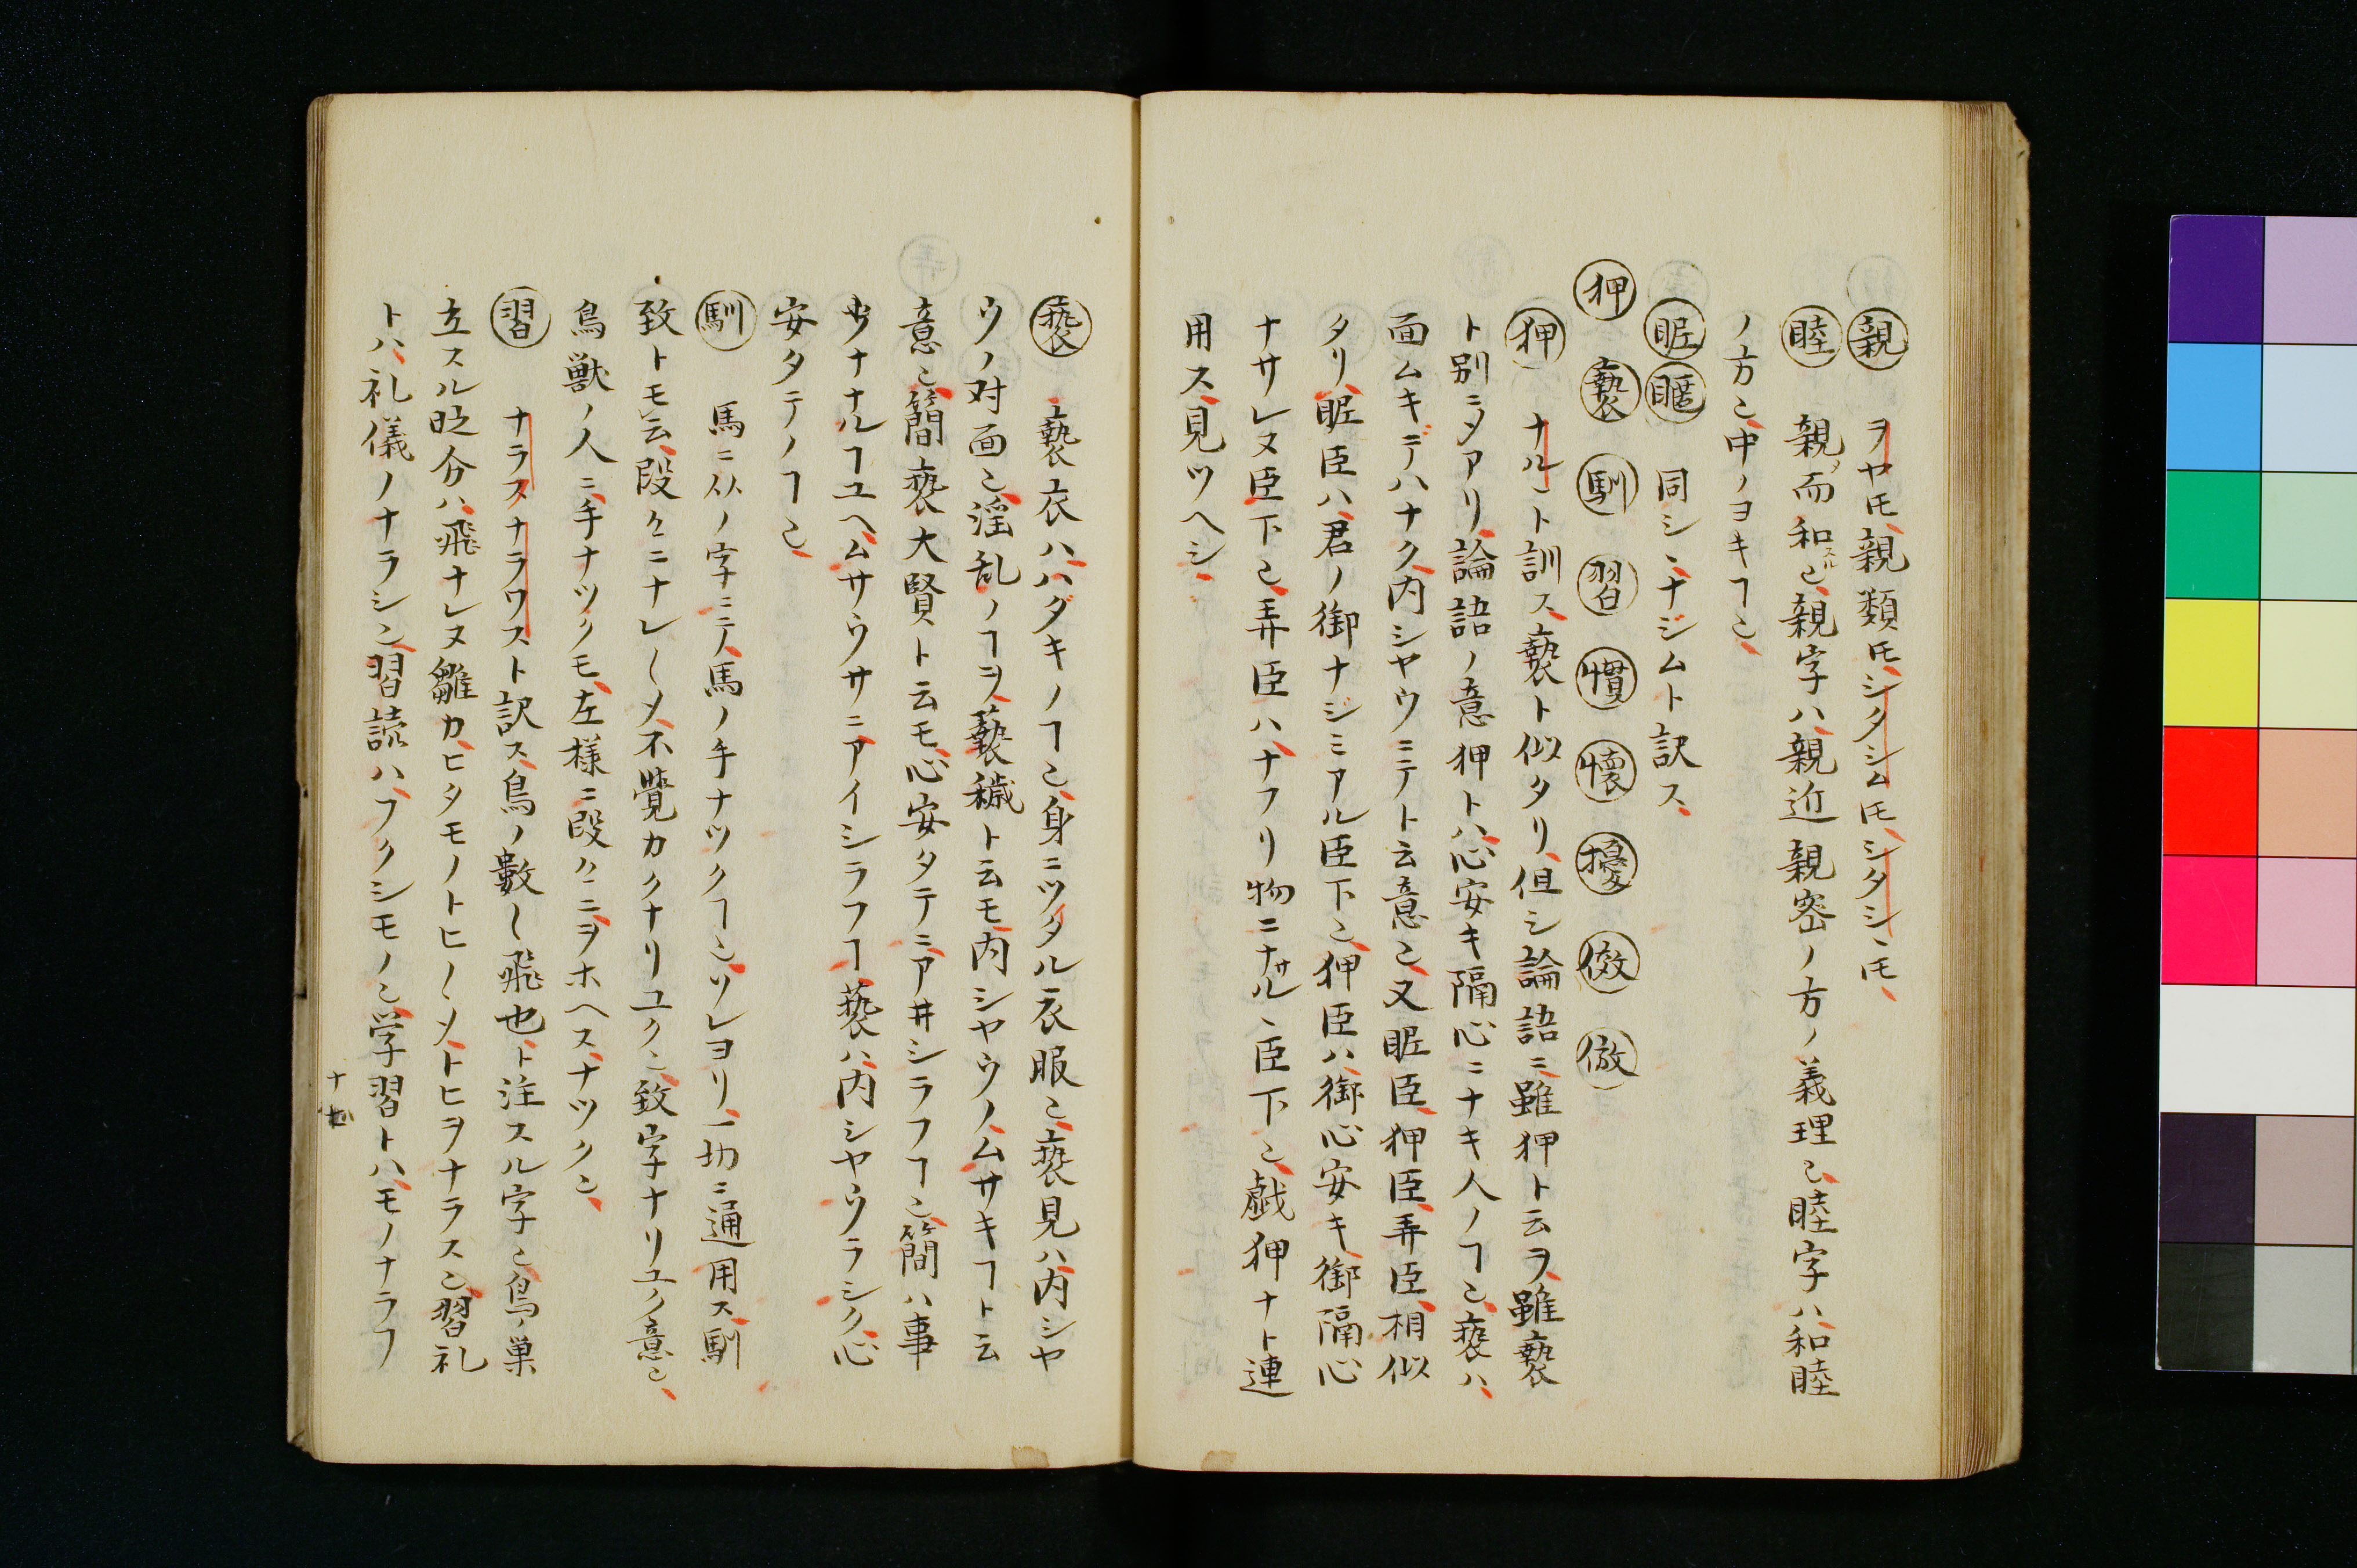 親 ヲヤ𪜈親類𪜈シタシム𪜈シタシヽ𪜈
睦 親ノ而和スルヿ親字ハ親近親密ノ方ノ義理也睦字ハ和睦
ノ方也中ノヨキヿ也
眤暱 同シヽナジムト訳ス
狎 褻 馴 習 慣 懐 擾 傚 倣
狎 ナルヽト訓ス褻ト似タリ但シ論語ニ雖狎ト云ヲ雖褻
ト別ニメアリ論語ノ意狎トハ心安キ隔心ニナキ人ノヿ也褻ハ
面ムキデハナク内シヤウニテト云意也又眤臣狎臣弄臣相似
タリ眤臣ハ君ノ御ナジミアル臣下也狎臣ハ御心安キ御隔心
ナサレヌ臣下也弄臣ハナフリ物ニナサルヽ臣下也戯狎ナト連
用ス見ツヘシ
褻 褻衣ハハダキノヿ也身ニツタル衣服也褻見ハ内シヤ
ウノ対面也淫乱ノヿヲ褻穢ト云モ内シヤウノムサキヿト云
意也簡褻大賢ト云モ心安タテニアヰシラフヿ也簡ハ事
少ナナルヿユヘムサウサニアイシラフヿ褻ハ内シヤウラシク心
安タテノヿ也
馴 馬ニ从ノ字ニテ馬ノ手ナツクヿ也ソレヨリ一切ニ通用ス馴
致トモ云段々ニナレ〱メ不覺カクナリユク也致字ナリユク意也
鳥獣ノ人ニ手ナツクモ左様ニ段々ニヲホヘスナツク也
習 ナラスナラワスト訳ス鳥ノ數〱飛也ト注スル字也鳥ノ巣
立スル時分ハ飛ナレヌ雛カヒタモノトヒ〱メトヒヲナラス也習礼
トハ礼儀ノナラシ也習読ハフクシモノ也学習トハモノナラフ